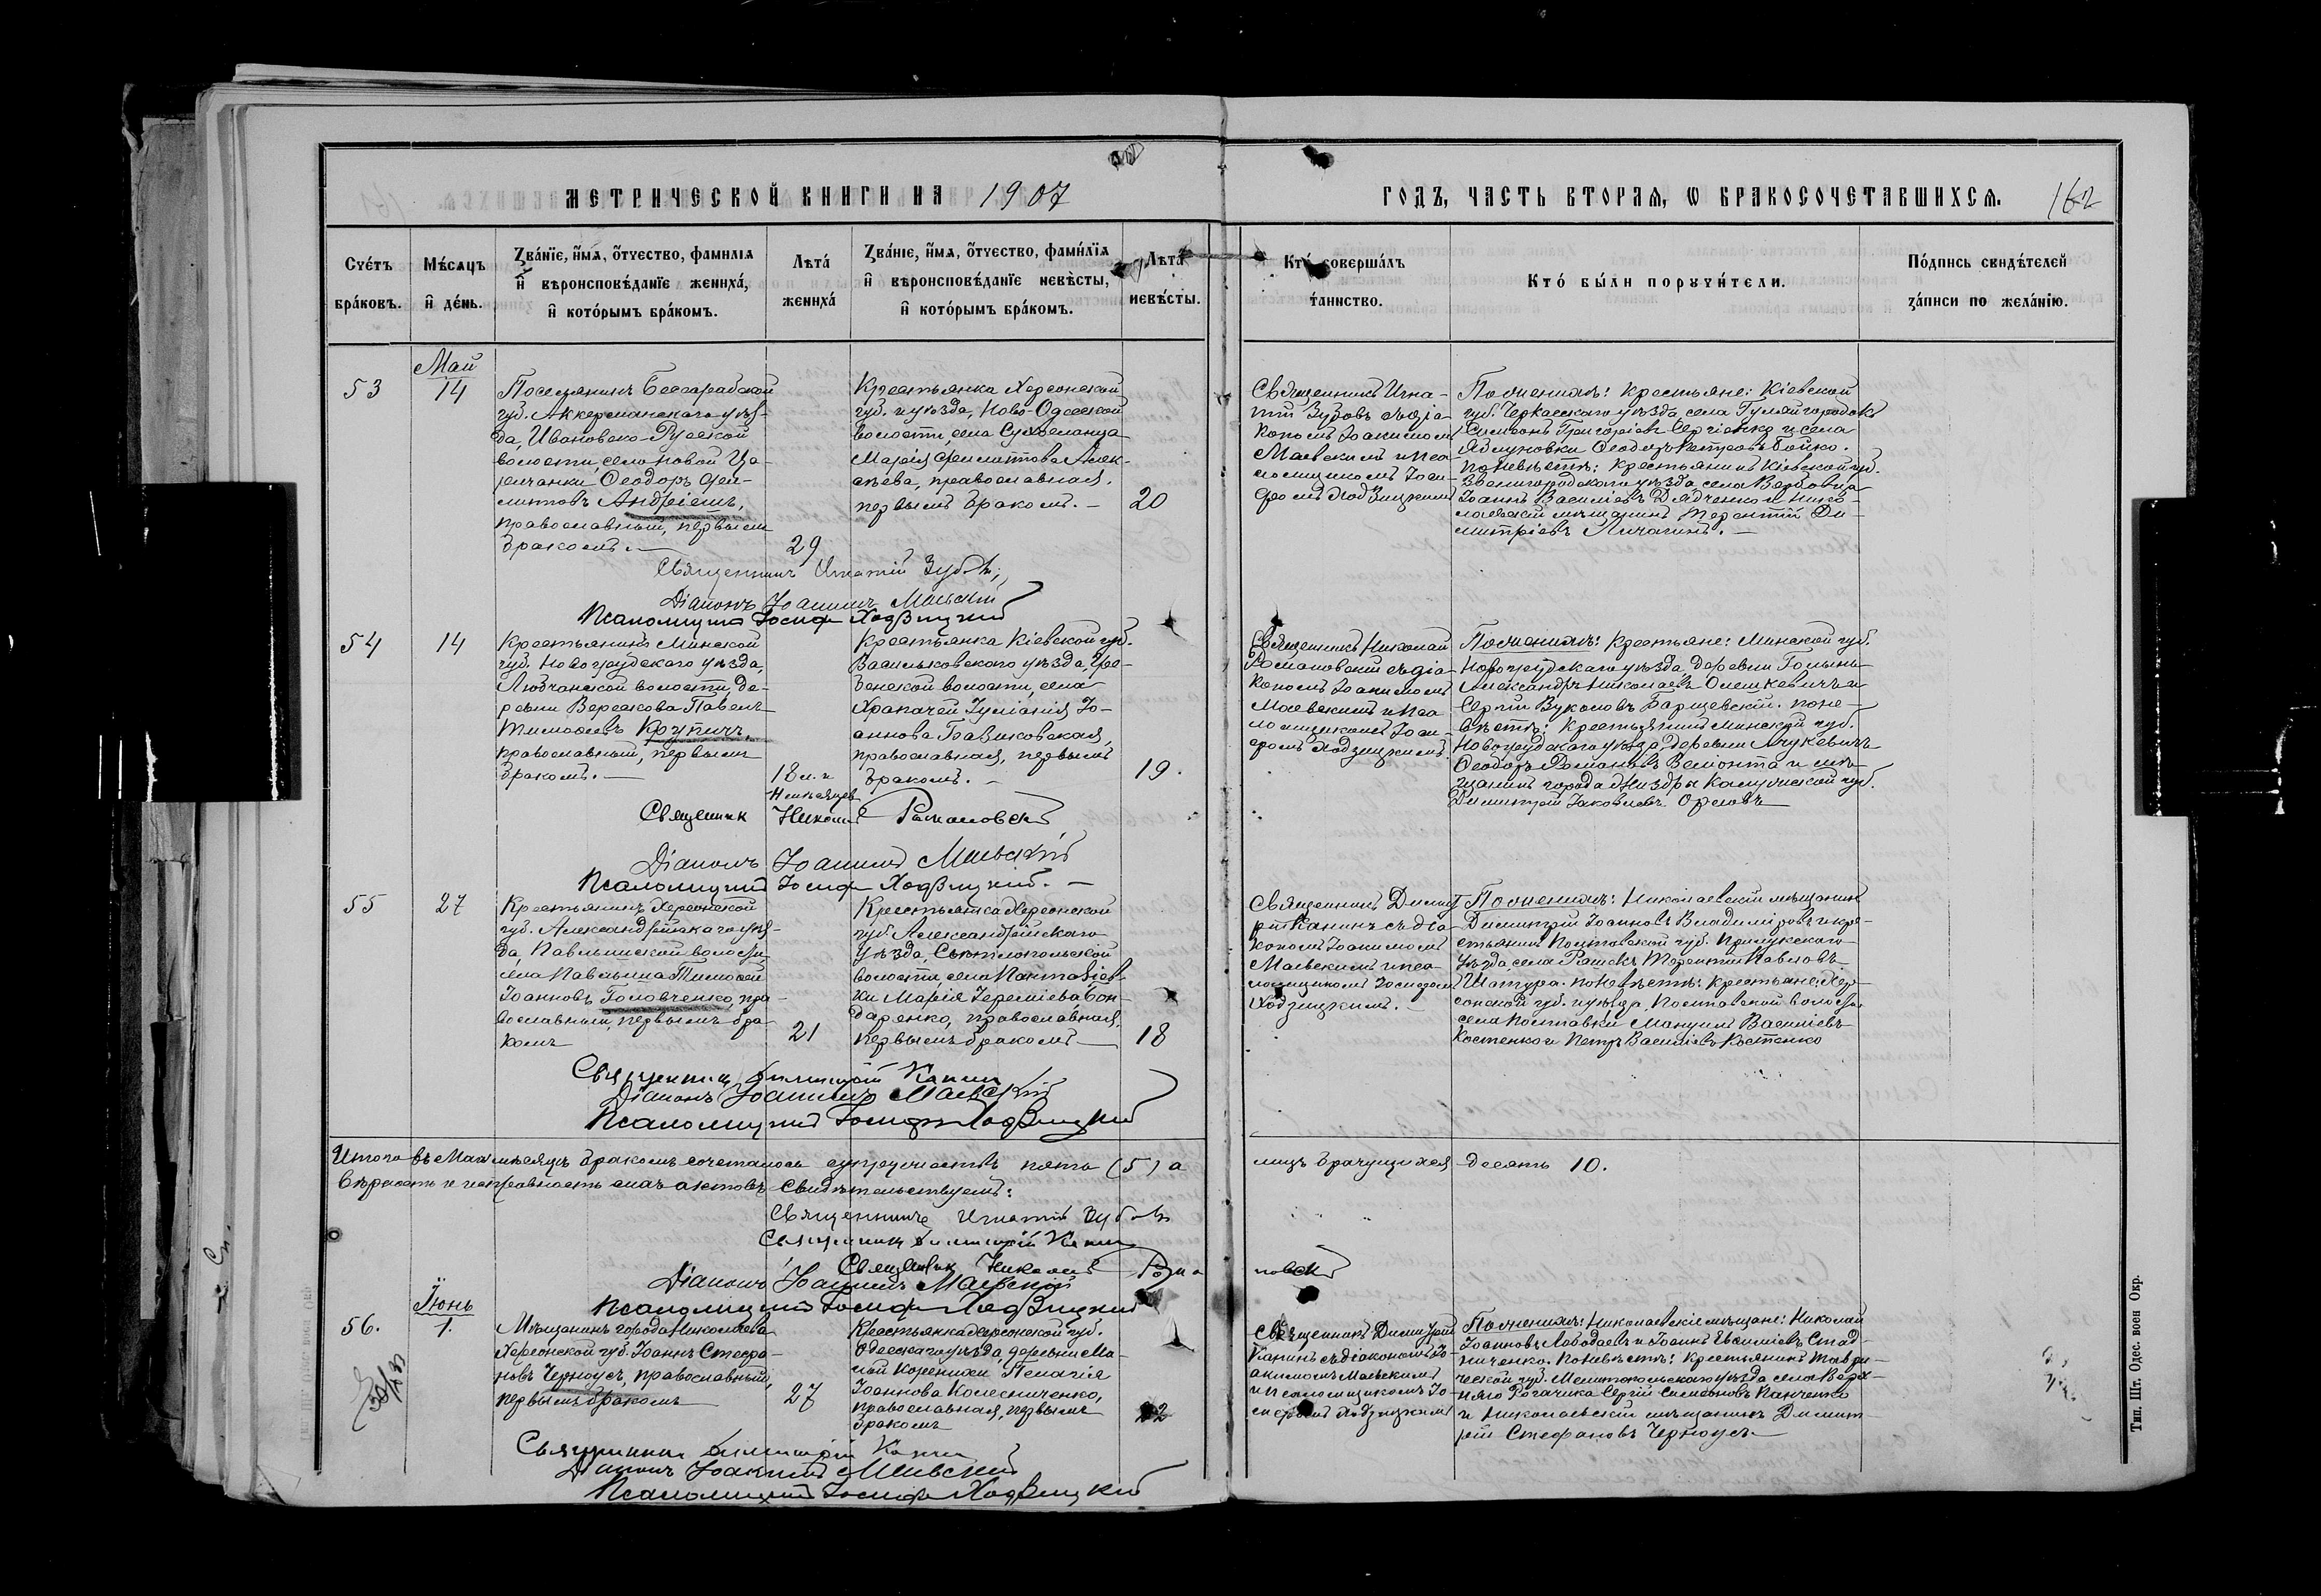 МЕТРИЧЕСКОЙ КНИГИ НА 1907
ГОДЪ, ЧАСТЬ ВТОРАЯ, Ѡ БРАКОСОЧЕТАВШИХСЯ. 162
Счетъ браковъ.
Мѣсяцъ и день.
Званіе, имя, отчество, фамилія
и вѣроисповѣданіе жениха,
и которымъ бракомъ.
Лѣта жениха
Званіе, имя, отчество, фамилія
и вѣроисповѣданіе невѣсты,
и которымъ бракомъ.
Лѣта невѣсты.
Кто совершалъ таинство.
Кто были поручители.
Подпись свидѣтелей
записи по желанію.
53
Май
14
Поселянинъ Бессарабской
губ. Аккерманскаго уѣз-
да, Ивановско-Русской
волости, села Новой Ца-
ричанки Ѳеодоръ
Андріешъ,
православный, первымъ
бракомъ.
29
Крестьянка Херсонской
губ. и уѣзда, Ново-Одесской
волости, села
Марія Алек-
сѣева, православная,
первымъ бракомъ. —
20
Священникъ Игна-
тій Зубовъ съ діа-
кономъ Іоакимомъ
Маевскимъ и пса-
ломщикомъ Іоси-
фомъ Ходзицкимъ
По женихѣ: крестьяне: Кіевской
губ. Черкасскаго уѣзда, села Гуляйгородка
Симеонъ Григоріевъ Сергіенко и села
Яблуновки Ѳеодоръ Петровъ Бойко.
По невѣстѣ: крестьянинъ Кіевской губ.
Звенигородскаго уѣзда, села Вербовца
Іоаннъ Василіевъ Дядченко и Нико-
лаевскій мѣщанинъ Терентій Ди-
митріевъ Личагинъ. —
Священникъ Игнатій Зубовъ
Діаконъ Іоакимъ Маевскій
Псаломщикъ Іосифъ Ходзицкій
54
14
Крестьянинъ Минской
губ. Новогрудскаго уѣзда,
Любчанской волости, де-
ревни Верескова Павелъ
Тимоѳеевъ Крупичъ,
православный, первымъ
бракомъ. —
18 л. и
мѣсяцев
Крестьянка Кіевской губ.
Васильковскаго уѣзда, Гре-
бенской волости, села
Храпачей Іуліанія Іо-
аннова
православная, первымъ
бракомъ. —
19.
Священникъ Николай
Романовскій съ діа-
кономъ Іоакимомъ
Маевскимъ и пса-
ломщикомъ Іоси-
фомъ Ходзицкимъ.
По женихѣ: крестьяне: Минской губ.
Новогрудскаго уѣзда, деревни
Александръ Николаевъ Олешкевичъ и
Сергій Вуколовъ Барщевскій. По не-
вѣстѣ: крестьянинъ Минской губ.
Новогрудскаго уѣзда, деревни
Ѳеодоръ Романовъ и мѣ-
щанинъ города Жиздры Калужской губ.
Димитрій Іаковлевъ Орловъ
Священник Николай Романовский
Діаконъ Іоакимъ Маевскій
Псаломщикъ Іосифъ Ходзицкій. —
55
27
Крестьянинъ Херсонской
губ. Александрійскаго уѣз-
да, Павлышской волости,
села Павлыша Тимоѳей
Іоанновъ Головченко, пра-
вославный, первымъ бра-
комъ
21
Крестьянка Херсонской
губ. Александрійскаго
уѣзда,
волости, села
Марія Іереміева Бон-
даренко, православная,
первымъ бракомъ —
18
Священникъ Димит-
рій Канинъ съ діа-
кономъ Іоакимомъ
Маевскимъ и пса-
ломщикомъ Іосифомъ
Ходзицкимъ. —
По женихѣ: Николаевскій мѣщанинъ
Димитрій Іоанновъ Владиміровъ и кре-
стьянинъ Полтавской губ. Прилукскаго
уѣзда, села Рашекъ Терентій Павловъ
Шатура. По невѣстѣ: крестьяне: Хер-
сонской губ. и уѣзда, волости,
села Мануилъ Василіевъ
Костенко и Петръ Василіевъ Костенко
Священникъ Димитрій Канин
Діаконъ Іоакимъ Маевскій
Псаломщикъ Іосифъ Ходзицкій
Итого въ Маѣ мѣсяцѣ бракомъ сочеталось супружествъ пять (5) а лицъ брачущихся десять 10.
Вѣрность и исправность сихъ актовъ свидѣтельствуемъ:
Священникъ Игнатій Зубовъ
Священникъ Димитрій Канин
Священник Николай Романовский
Діаконъ Іоакимъ Маевскій
Псаломщикъ Іосифъ Ходзицкій
56.
Іюнь
1.
Мѣщанинъ города Николаева
Херсонской губ. Іоаннъ Стефа-
новъ Черноусъ, православный,
первымъ бракомъ
27
Крестьянка Херсонской губ.
Одесскаго уѣзда, деревни Ма-
лой Коренихи Пелагія
Іоаннова Колесниченко,
православная, первымъ
бракомъ
22
Священникъ Димитрій
Канинъ съ діакономъ Іо-
акимомъ Маевскимъ
и псаломщикомъ Іо-
сифомъ Ходзицкимъ
По женихѣ: Николаевскіе мѣщане: Николай
Іоанновъ Лободаевъ и Іоаннъ Евѳиміевъ Стад-
ниченко. По невѣстѣ: крестьянинъ Таври-
ческой губ. Мелитопольскаго уѣзда села Верх-
няго Рогачика Сергій Симеоновъ Панченко
и Николаевскій мѣщанинъ Димит-
рій Стефановъ Черноусъ
Священникъ Димитрій Канин
Діаконъ Іоакимъ Маевскій
Псаломщикъ Іосифъ Ходзицкій
Тип. Шт. Одес. воен Окр.